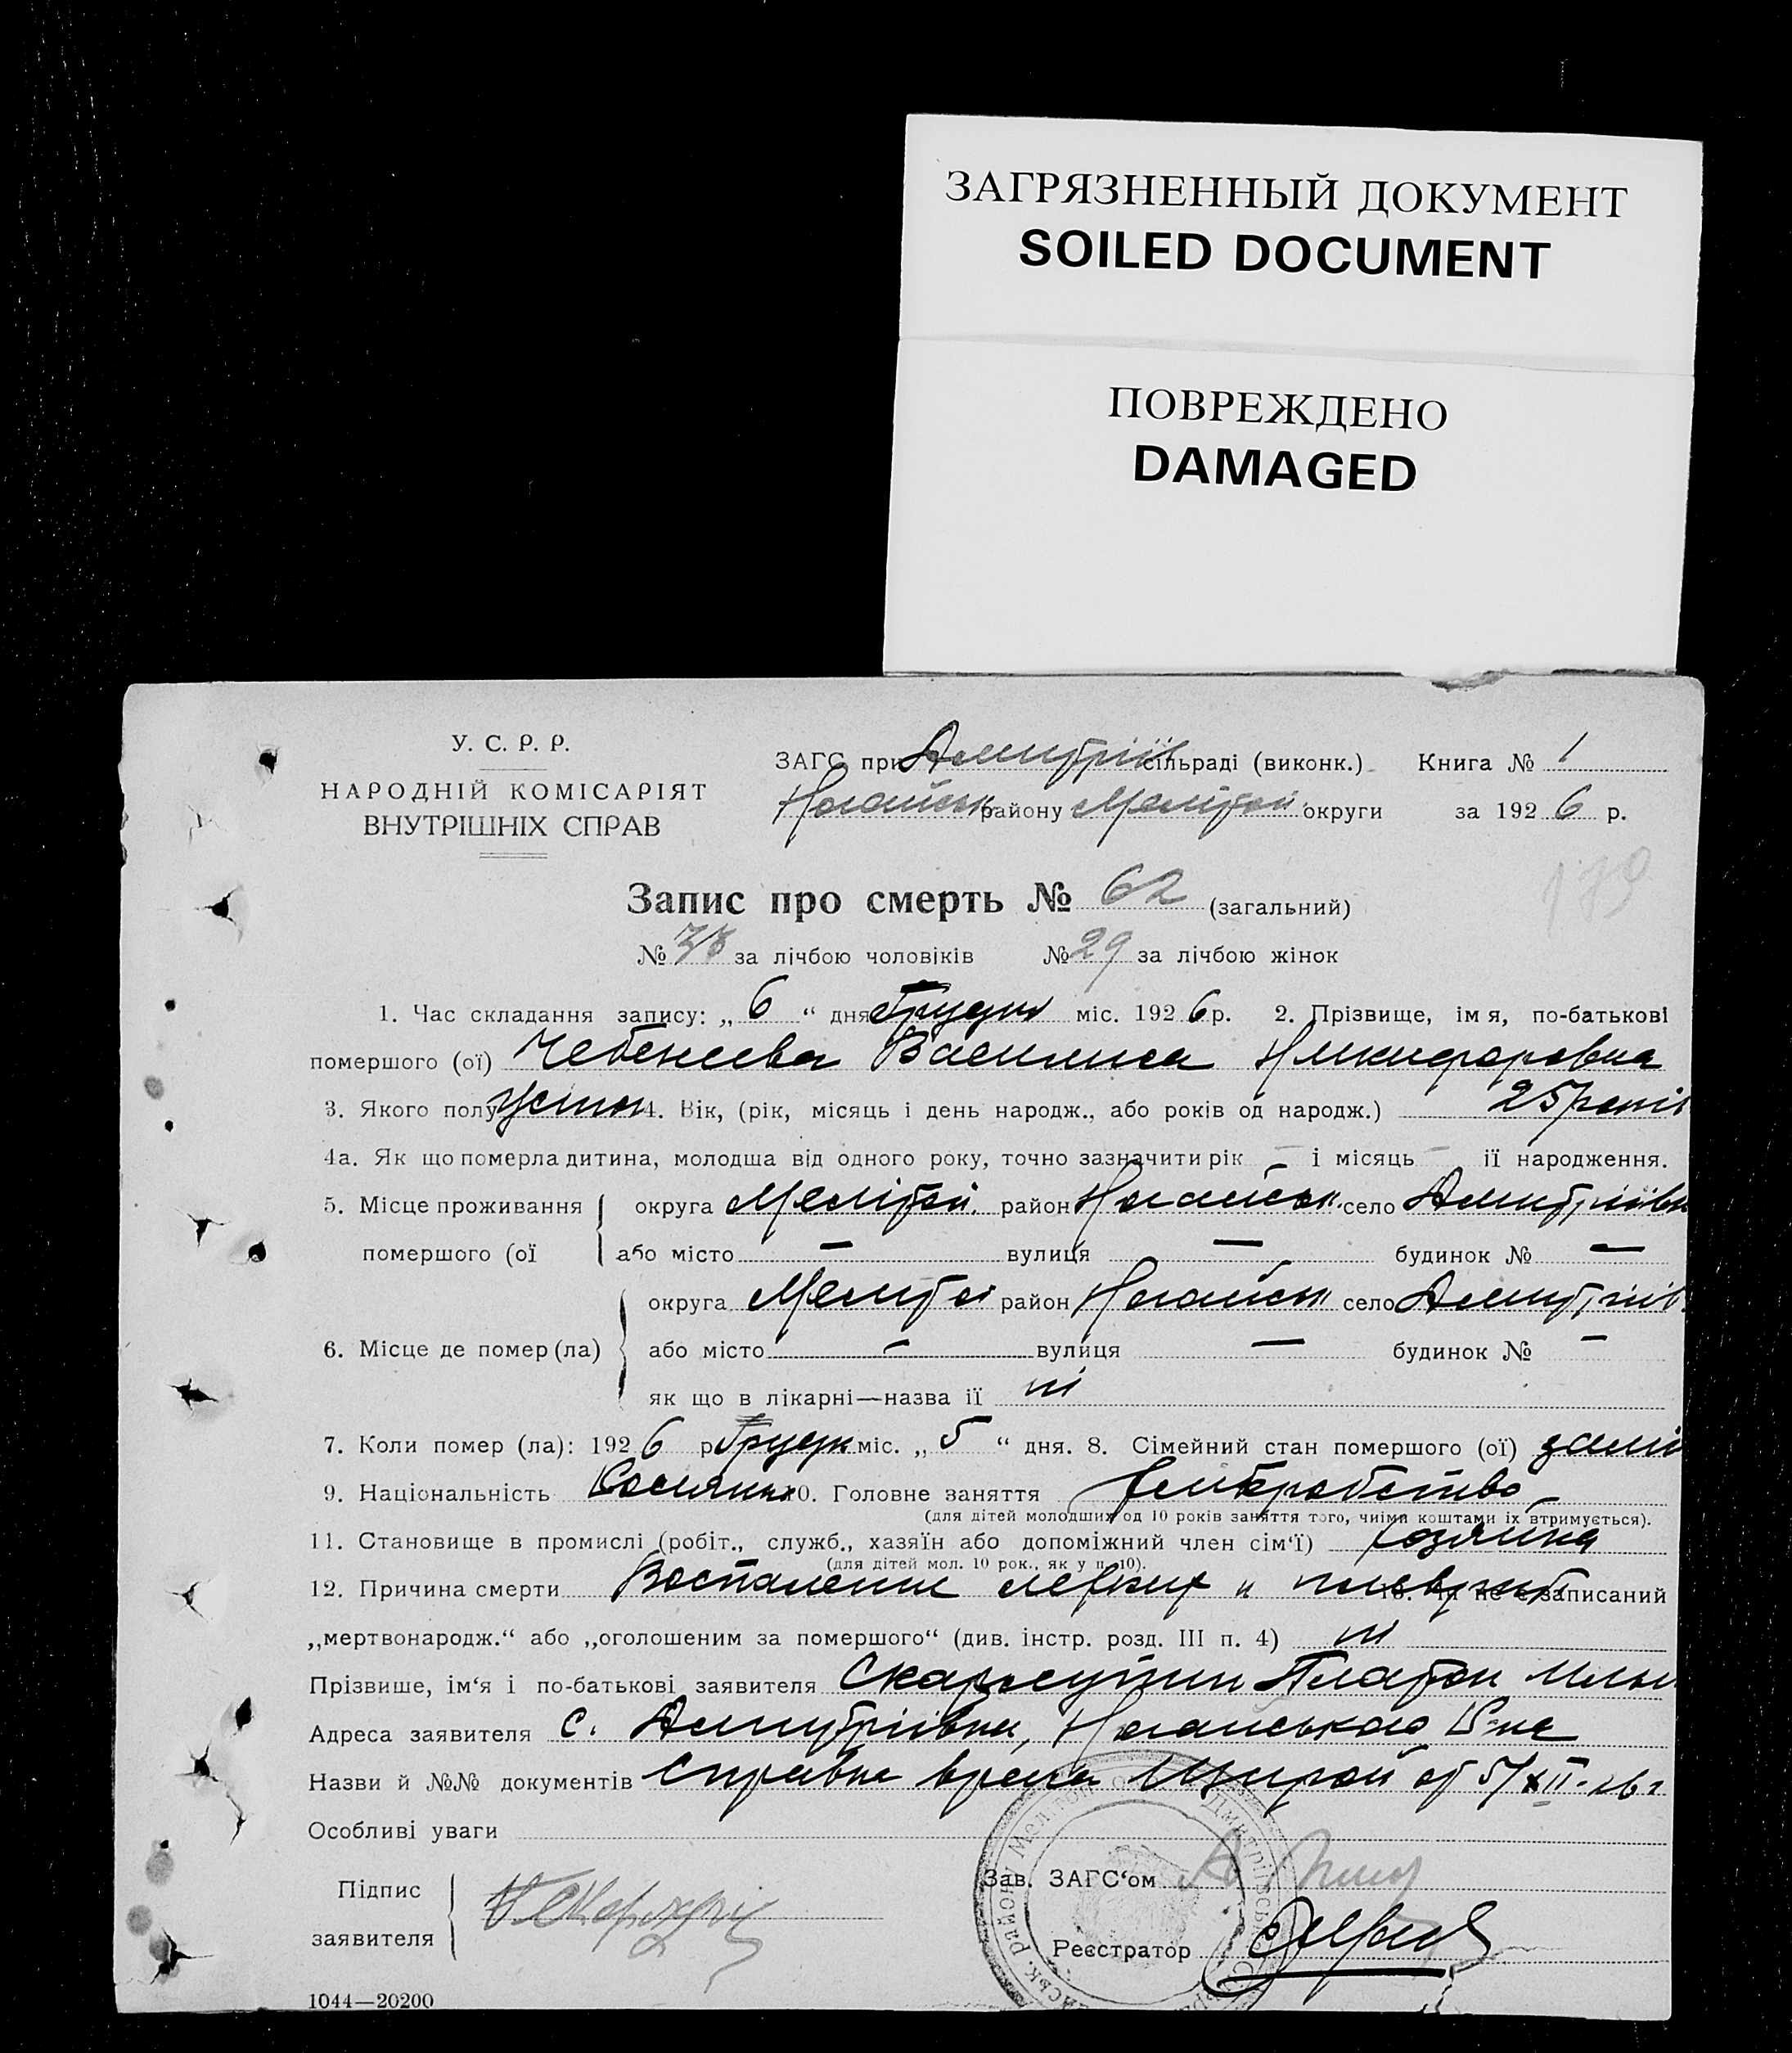 ЗАГРЯЗНЕННЫЙ ДОКУМЕНТ
SOILED DOCUMENT
ПОВРЕЖДЕНО
DAMAGED
У. С. Р. Р.
НАРОДНІЙ КОМІСАРІЯТ
ВНУТРІШНІХ СПРАВ
ЗАГС при Дмитріїв сільраді (виконк.) Книга № 1
Ногайськ району Мелітоп. округи за 1926 р.
Запис про смерть № 62 (загальний)
№ за лічбою чоловіків № 29 за лічбою жінок
1. Час складання запису: „ 6 “ дня Грудня міс. 1926 р. 2. Прізвище, імя, по-батькові
помершого (ої) Василиса
3. Якого полу 4. Вік, (рік, місяць і день народж., або років од народж.) 25 років
4а. Як що померла дитина, молодша від одного року, точно зазначити рік – і місяць – її народження.
5. Місце проживання округа Мелітоп. район Ногайськ. село Дмитріївка
помершого (ої або місто — вулиця — будинок № —
округа район Ногайськ село Дмитріїв.
6. Місце де помер (ла) або місто — вулиця — будинок № —
як що в лікарні—назва її ні
7. Коли помер (ла): 1926 р Грудн міс. „ 5 “ дня. 8. Сімейний стан помершого (ої)
9. Національність 10. Головне заняття
(для дітей молодших од 10 років заняття того, чиїми коштами їх втримується).
11. Становище в промислі (робіт., служб., хазяїн або допоміжний член сім‘ї)
(для дітей мол. 10 рок., як у п. 10).
12. Причина смерти Воспаление легких и плеврит 13. записаний
„мертвонародж.“ або „оголошеним за помершого“ (див. інстр. розд. III п. 4) ні
Прізвише, ім‘я і по-батькові заявителя Платон
Адреса заявителя с. Дмитріївка, Ногайського
Назви й №№ документів Справка врача от 5/XII-26 г
Особливі уваги
Підпис
заявителя
Зав. ЗАГС‘ом
Реєстратор
1044—20200